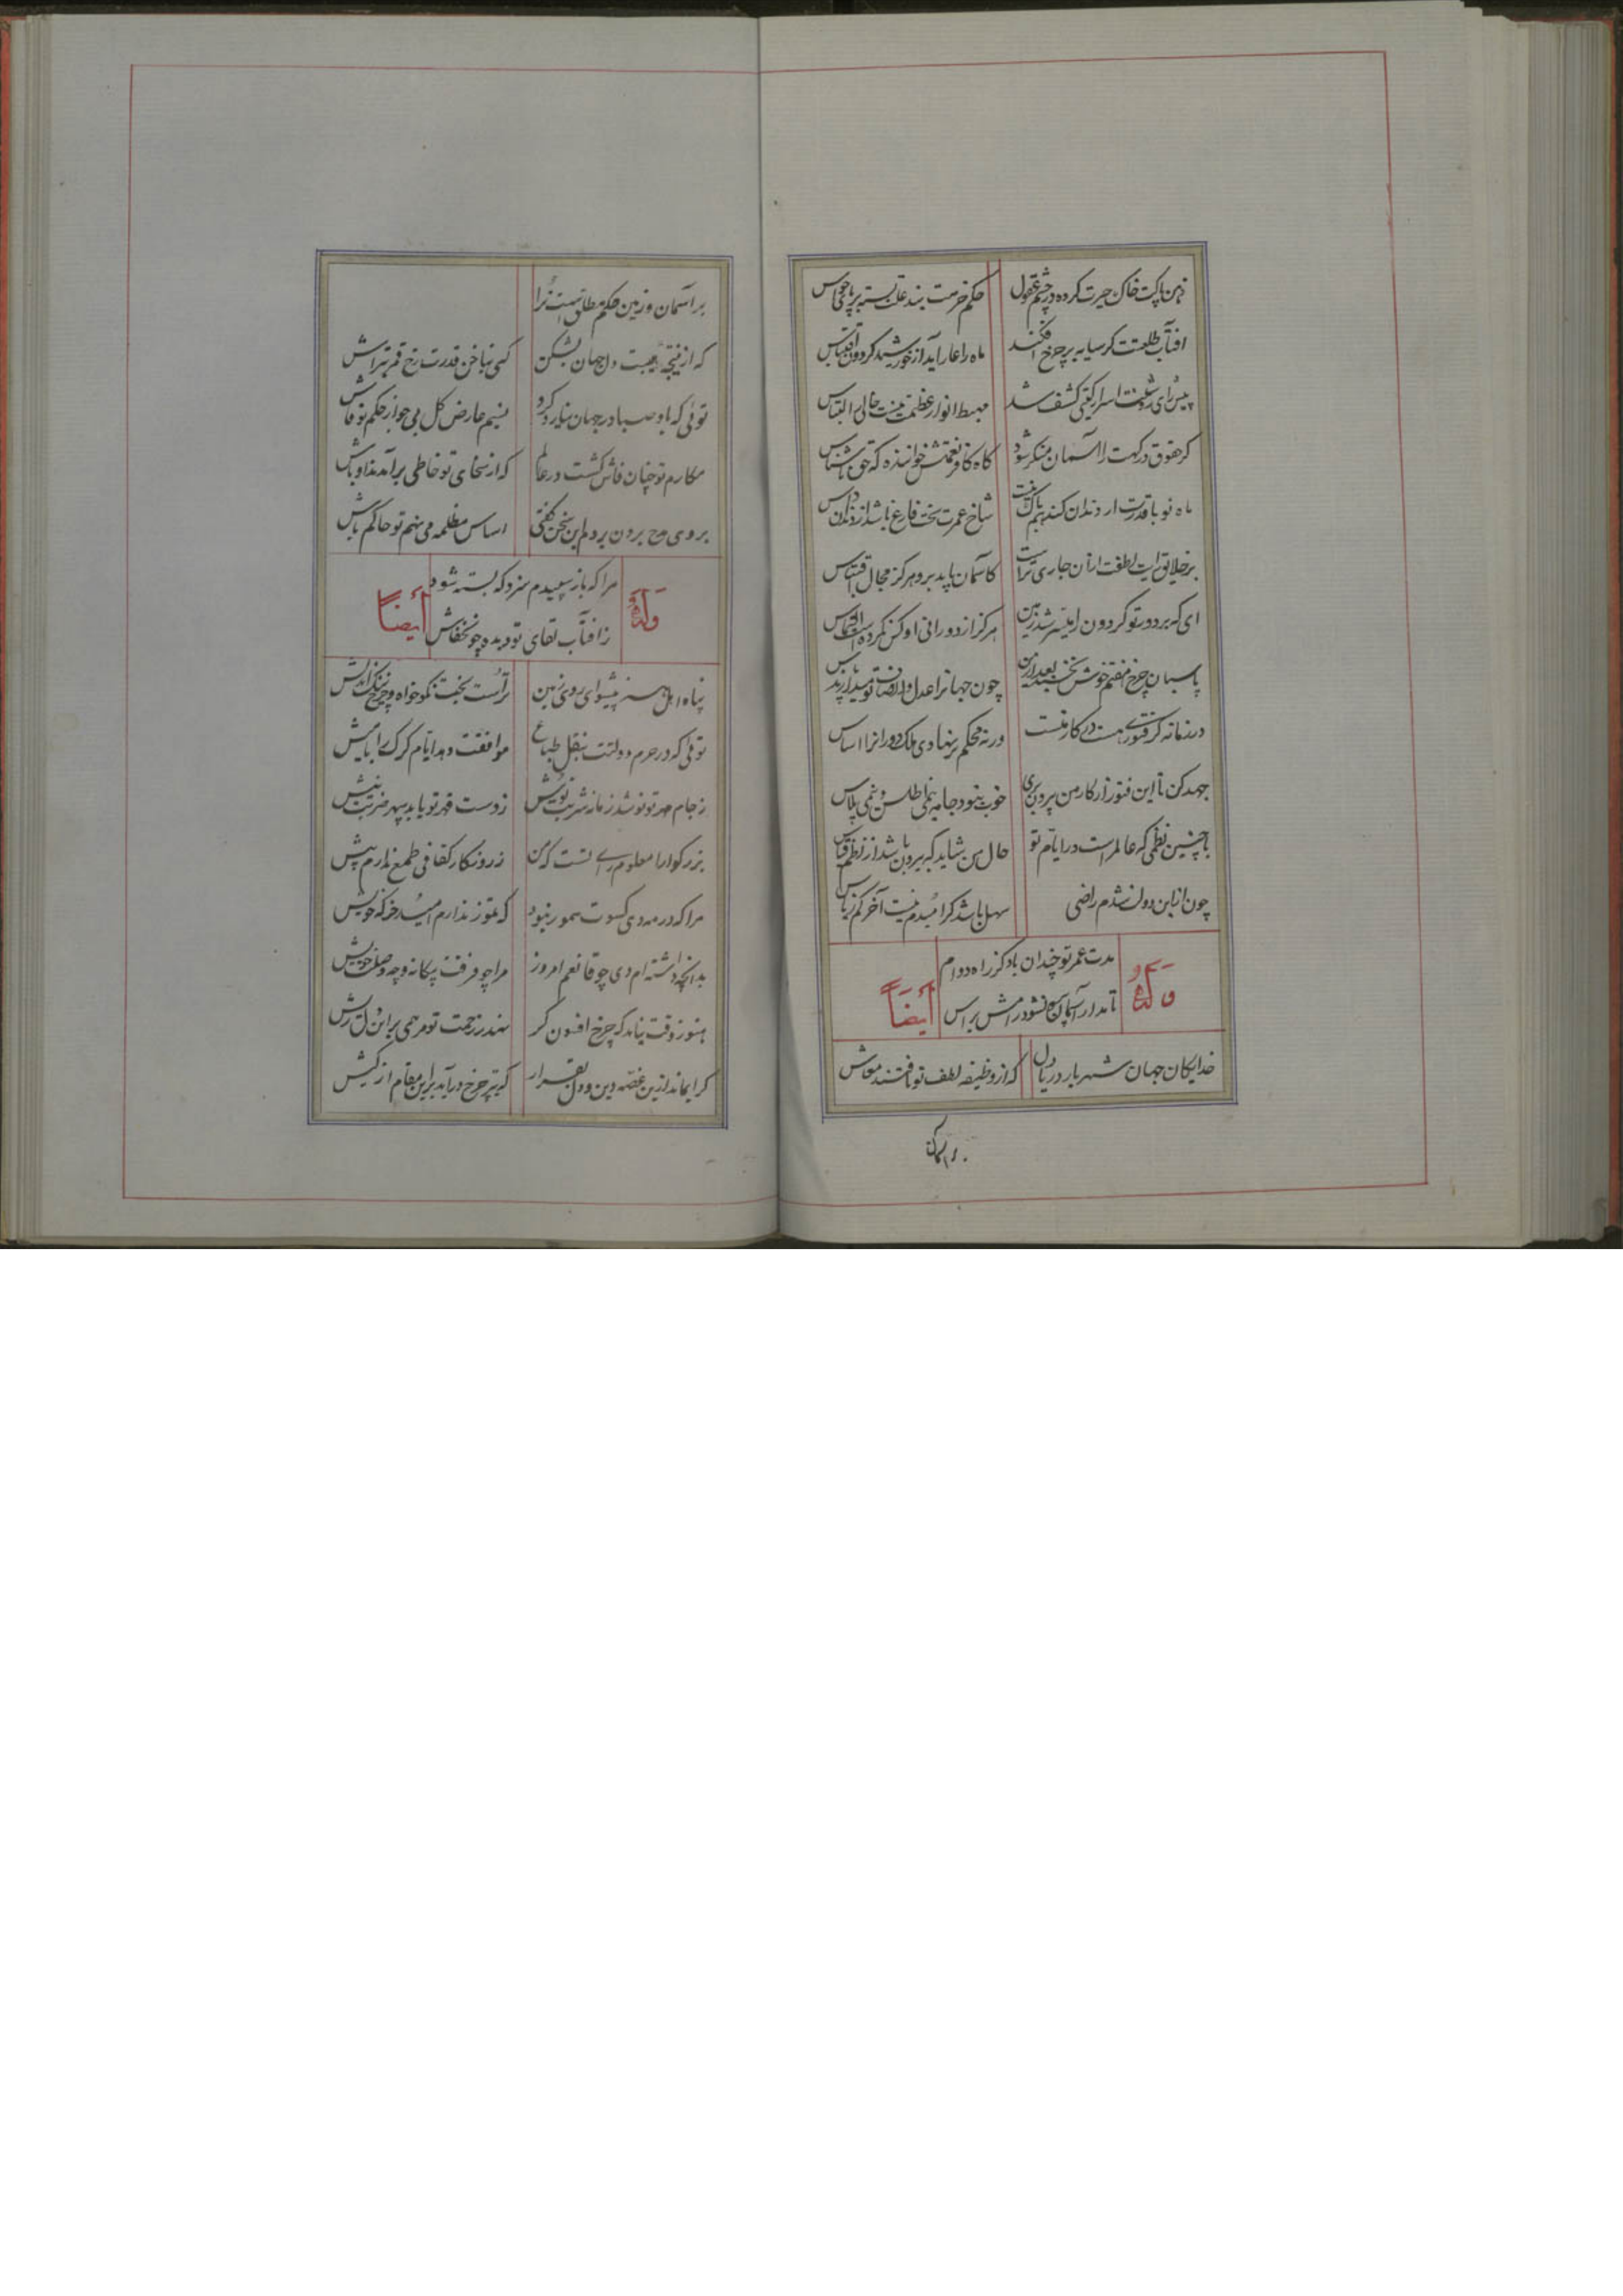 ذهن پاکت خاک حیرت کرده در چشم عقول
حکم خرمت بند علت بسته بر پای حواس
افتاب طلعتت کر سایه بر چرخ افکند
ماه را عار آید از خورشید کردون اقتباس
پیش رای روشنت اسرار کیتی کشف شد
مهبط انوار عظمت نیست جای التباس
کر حقوق درکهت را آسمان منکر شود
کاه کافر نعمتش خوانند و که حق ناشناس
ماه نو با قدرت ار دندان کند هم باک نیست
شاخ عمرت سخت فارغ باشد از دندان داس
بر خلایق آیت لطفت از آن جاری تراست
کاسمان یابد برو هرکز مجال اقتباس
ای که بر دور تو کردون را میسر شد زمین
هرکز از دورانی او کس نکرده است التماس
پاسبان چرخ هفتم خوش نخسبد بعد ازین
چون جهانرا عدل و انصاف تو میدارند پاس
در زمانه کر فتوری هست در کار منست
ورنه محکم بر نهادی ملک دوران را اساس
جهد کن تا این فتور از کار من بیرون بری
خوب نبود جامه نیمی اطلس و نیمی پلاس
با چنین نظمی که عالم راست در ایام تو
حال من شاید که بیرون باشد از نظم و قیاس
چون ازین دولت شدم راضی
سهل باشد کر امیدم نیست آخر کم ز یاس
وله
مدت عمر تو چندان باد کز راه دوام
ایضاً
تا مدار آسمان نشود رامش براس
خدایکان جهان شهریار دریا دل
که از وظیفه لطف تو یافتند معاش
بر آسمان
بر آسمان و زمین حکم مطلق است ترا
که از نتیجه هیبت دل جهان بشکن
کهی بناخن قدرت رخ قمر بتراش
توئی که باد صبا در جهان نیارد کرد
نسیم عارض کل بی جواز حکم تو فاش
مکارم تو چنان فاش کشت در عالم
که از سخای تو خاطی برآمد
بروی مدح برون بردم این سخن کفتی
اساس مظلمه می نهم تو حاکم باش
وله
مرا که باز سپیدم سزد که بسته شود
ایضاً
ز افتاب لقای تو دیده چو خفاش
پناه اهل هنر پیشوای روی زمین
تراست بخت نکوخواه و چرخ نیک اندیش
توئی که در حرم دولتت بنقل طباع
موافقت دهد ایام کرک را با میش
ز جام مهر تو نوشد زمانه شربت نوش
ز دست قهر تو یابد سپهر ضربت نیش
بزرکوارا معلوم رای تست که من
ز روزکار کفافی طمع ندارم بیش
مرا که در مه دی کسوت سمور نبود
که تموز ندارم امید خرکه خویش
بدانچه داشته ام دی چو قانعم امروز
مرا چو فرقت بیکانه و چه وصلت خویش
هنوز وقت نیامد که چرخ افسون کر
نهد ز رحمت تو مرهمی برین دل ریش
کرا نماند ازین غصه دین و دل بقرار
که تیر چرخ درآید برین مقام از کیش